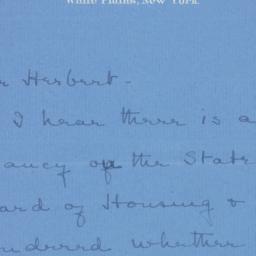 White Plains, New York.
r Herbert -
I hear there is a
ancy on the State
ard of Housing &
ndered whether